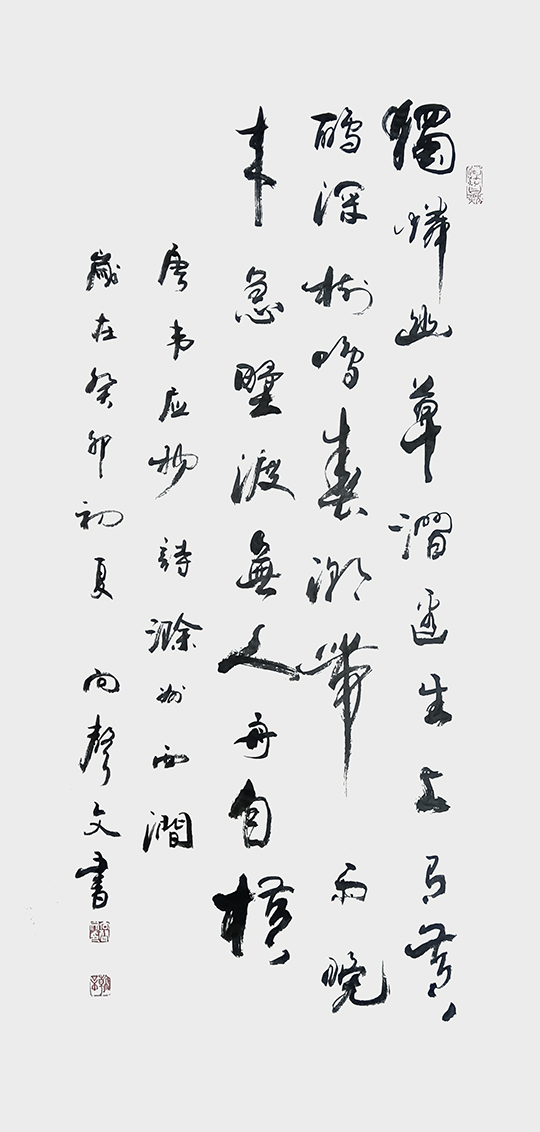 獨憐幽草澗邊生上有黃
鸝深樹鳴春潮帶雨晚
来急野渡無人舟自橫
唐韦应物詩滁州西澗
歲在癸卯初夏 向聲文書